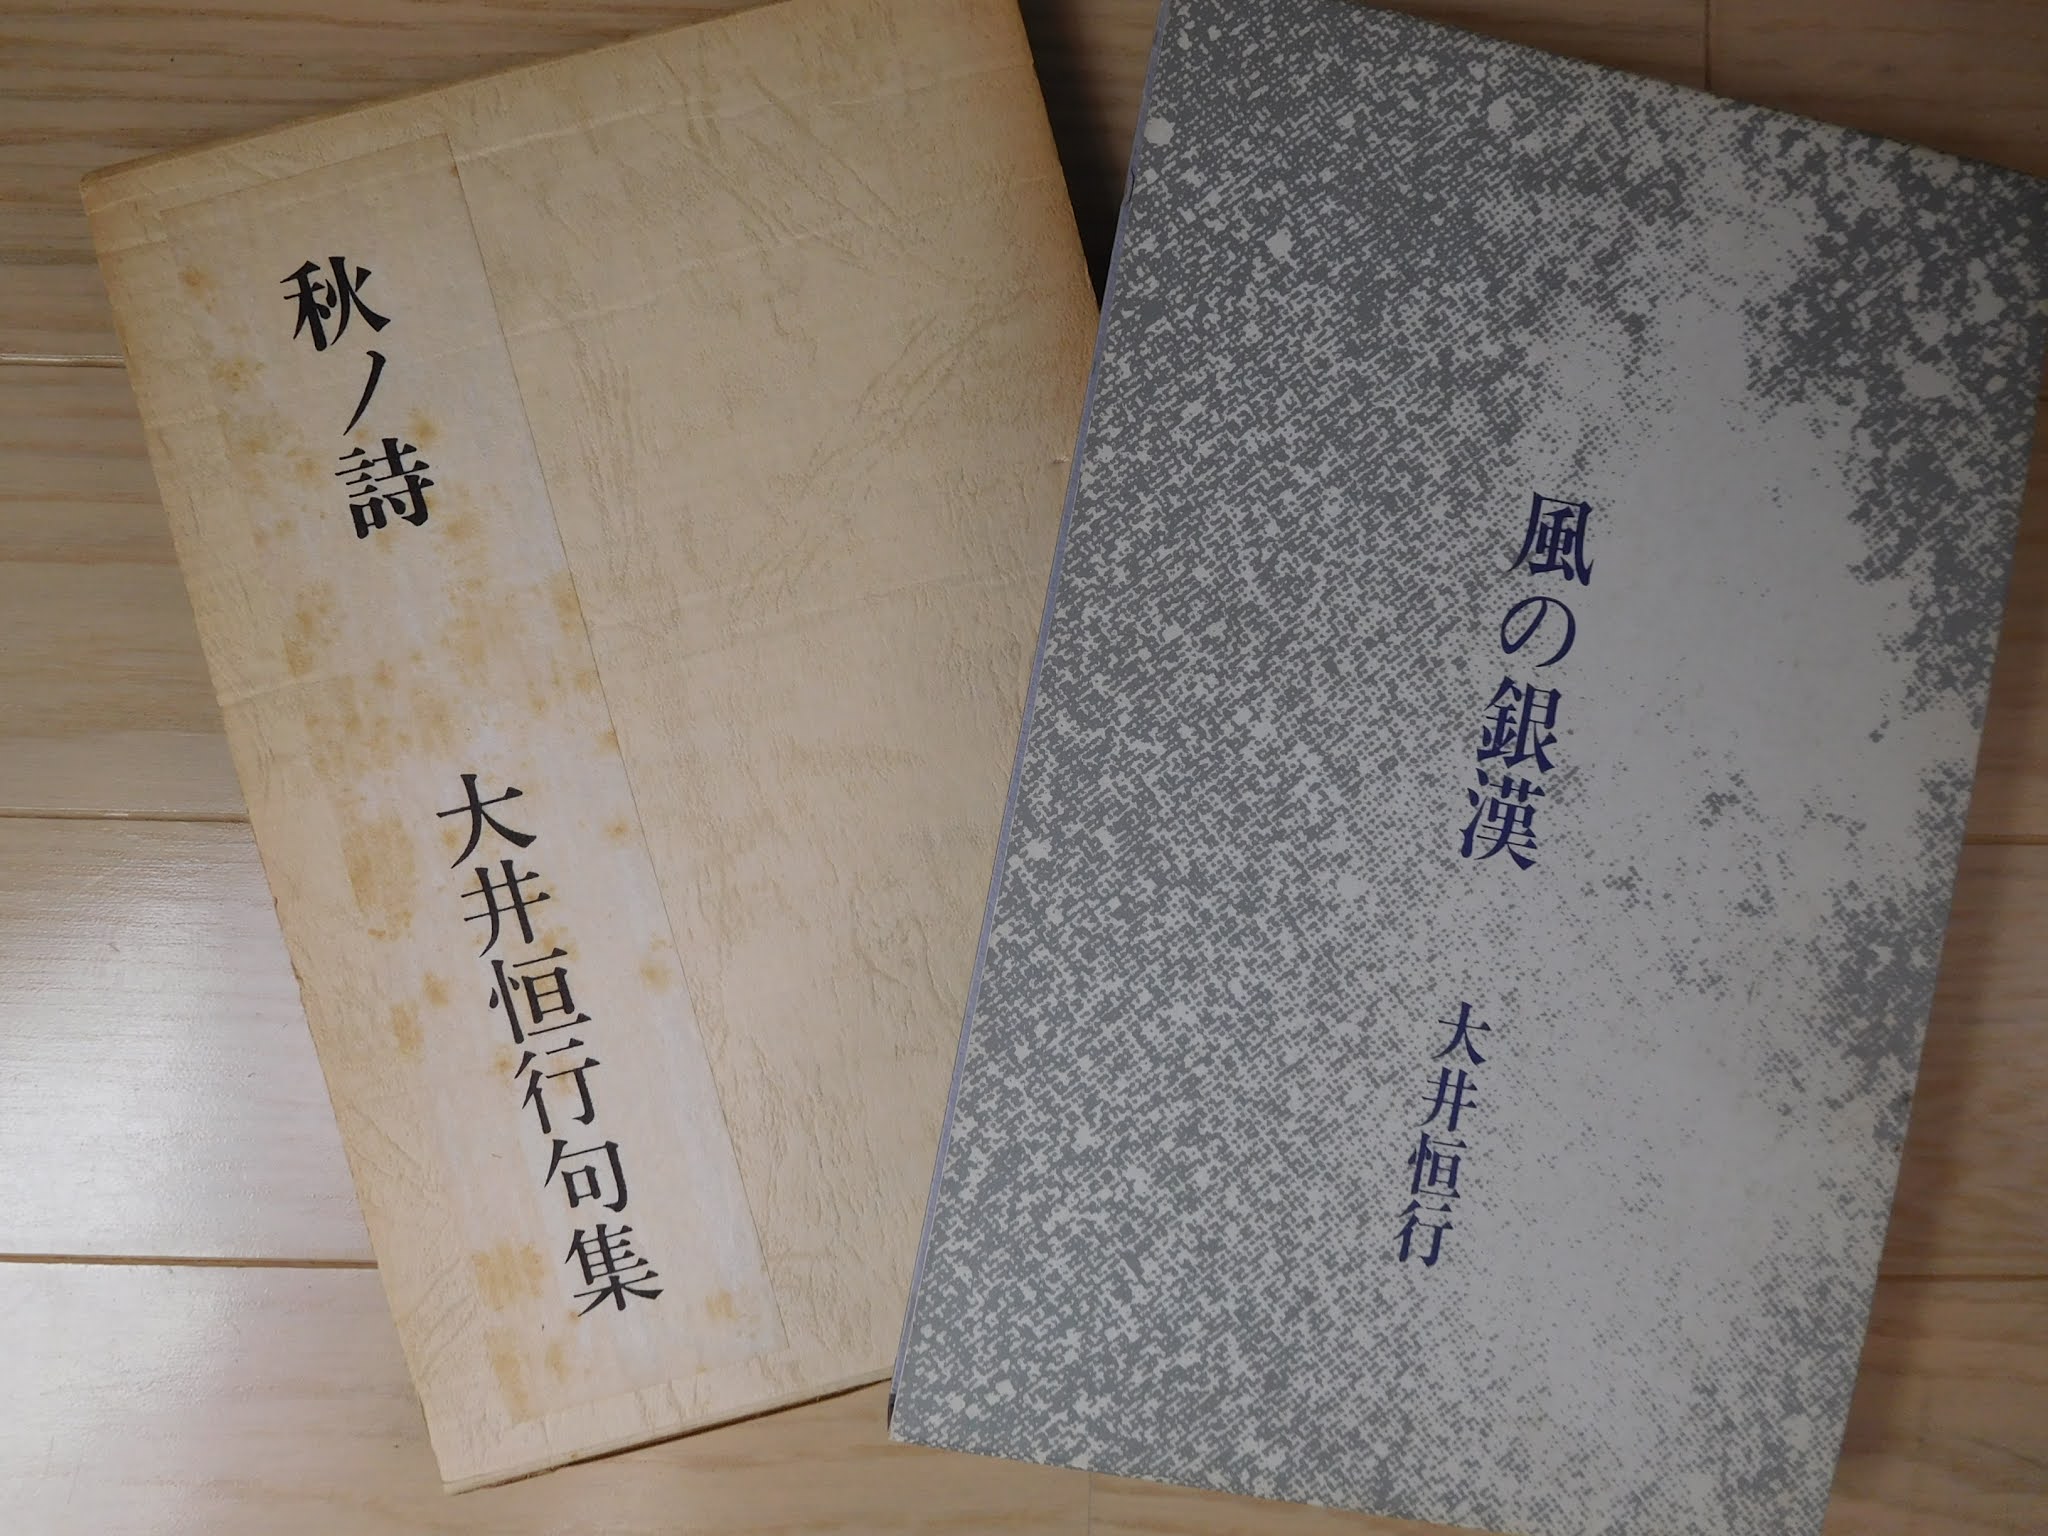 秋ノ詩
大井恒行句集
風の銀漢
大井恒行